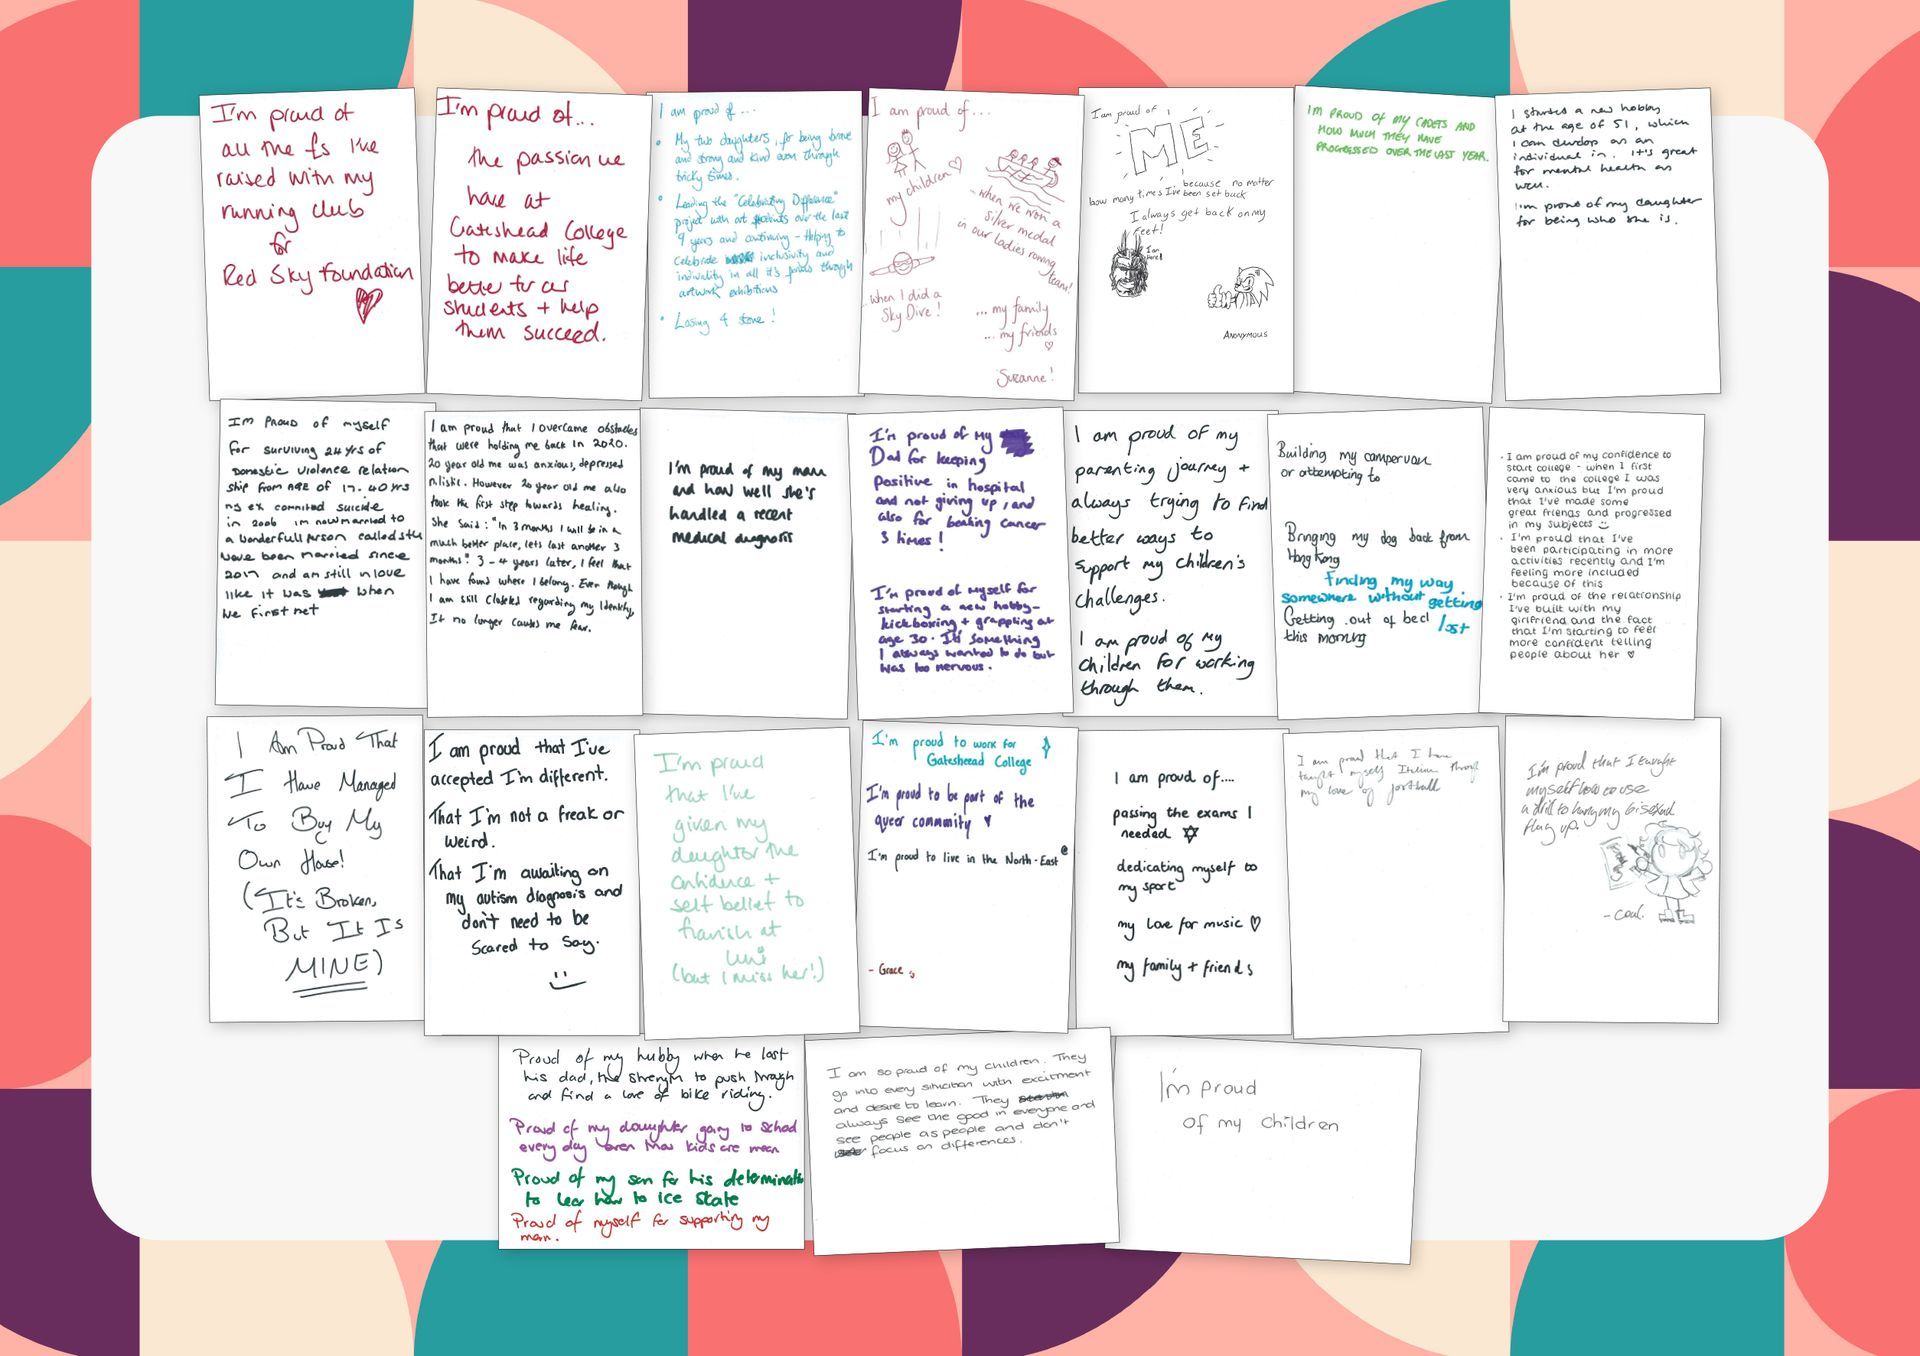 I'm proud of
all the £s I've
raised with my
running club
for
Red Sky Foundation
I'm proud of...
the passion we
have at
Gateshead College
to make life
better for our
students + help
them succeed.
I am proud of...
• My two daughters, for being brave
and strong and kind even through
tricky times.
• Leading the "Celebrating Difference"
project with art students over the last
9 years and continuing - helping to
celebrate inclusivity and
in all it's forms through
artwork exhibitions
• Losing 4 stone!
I am proud of...
my children ♡
- when we won a
silver medal
in our ladies rowing
team!
...when I did a
Sky Dive!
... my family
... my friends
♡
Suzanne!
I am proud of
ME
because no matter
how many times I've been set back
I always get back on my
feet!
I am
ANONYMOUS
I'M PROUD OF MY CADETS AND
HOW MUCH THEY HAVE
PROGRESSED OVER THE LAST YEAR.
I started a new hobby
at the age of 51, which
I can develop as an
individual in. It's great
for mental health as
well.
I'm proud of my daughter
for being who she is.
I'm Proud of myself
for surviving 24 yrs of
Domestic violence relation
ship from age of 17-40 yrs
my ex commited suicide
in 2006 im now married to
a wonderfull person called stu
have been married since
2017 and am still in love
like it was when
we first met
I am proud that I overcame obstacles
that were holding me back in 2020.
20 year old me was anxious, depressed
However 20 year old me also
took the first step towards healing.
She said: "In 3 months I will be in a
much better place, lets last another 3
months". 3-4 years later, I feel that
I have found where I belong. Even though
I am still closeted regarding my Identity,
It no longer causes me fear.
I'm proud of my mam
and how well she's
handled a recent
medical diagnosis
I'm proud of My
Dad for keeping
positive in hospital
and not giving up, and
also for beating cancer
3 times!
I'm proud of myself for
starting a new hobby-
kickboxing + grappling at
age 30. It's something
I always wanted to do but
was too nervous.
I am proud of my
parenting journey +
always trying to find
better ways to
support my children's
challenges.
I am proud of my
children for working
through them.
Building my campervan
or attempting to
Bringing my dog back from
Hong Kong
Finding my way
somewhere without getting
lost
Getting out of bed
this morning
• I am proud of my confidence to
start college - when I first
came to the college I was
very anxious but I'm proud
that I've made some
great friends and progressed
in my subjects
• I'm proud that I've
been participating in more
activities recently and I'm
feeling more included
because of this
• I'm proud of the relationship
I've built with my
girlfriend and the fact
that I'm starting to feel
more confident telling
people about her ♡
I Am Proud That
I Have Managed
To Buy My
Own House!
(It's Broken,
But It Is
MINE)
I am proud that I've
accepted I'm different.
That I'm not a freak or
weird.
That I'm awaiting on
my autism diagnosis and
don't need to be
scared to say.
I'm proud
that I've
given my
daughter the
confidence +
self belief to
flourish at
uni
(but I miss her!)
I'm proud to work for
Gateshead College
I'm proud to be part of the
queer community ♥
I'm proud to live in the North-East
- Grace
I am proud of....
passing the exams I
needed ✡
dedicating myself to
my sport
my love for music ♡
my family + friends
I am proud that I have
taught myself Italian through
my love of football
I'm proud that I taught
myself how to use
a drill to hang my bisexual
flag up.
- Coal.
Proud of my hubby when he lost
his dad, the strength to push through
and find a love of bike riding.
Proud of my daughter going to school
every day even tho kids are mean
Proud of my son for his determination
to learn how to ice skate
Proud of myself for supporting my
mam.
I am so proud of my children. They
go into every situation with excitment
and desire to learn. They
always see the good in everyone and
see people as people and don't
focus on differences.
I'm proud
of my children